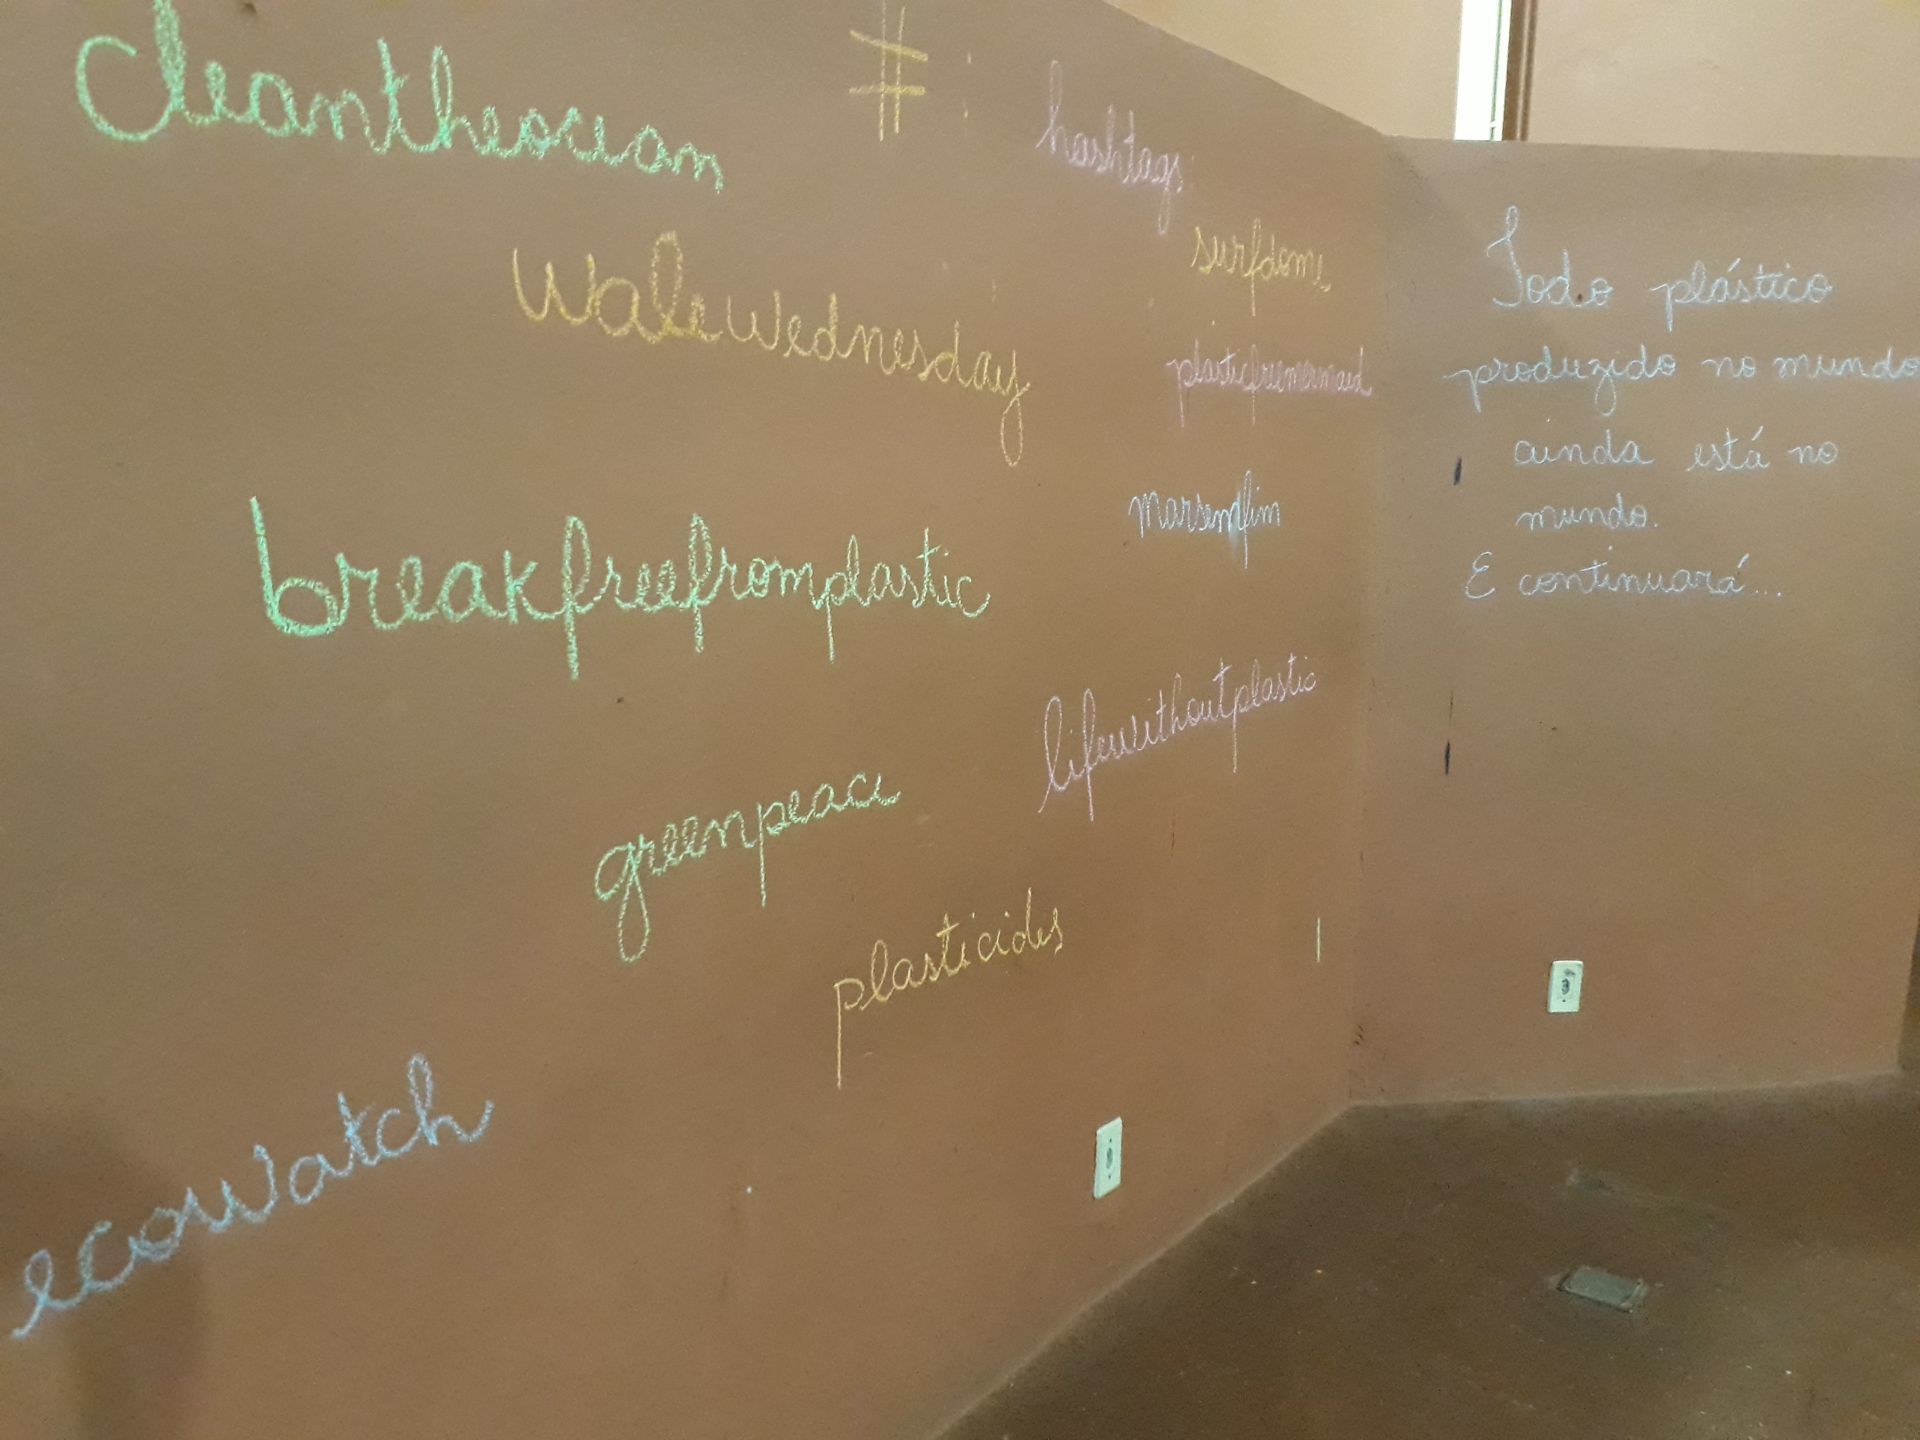 Cleantheocean
#
hashtags
WaleWednesday
surfdome
plasticfreemermaid
breakfreefromplastic
marsemfim
lifewithoutplastic
greenpeace
plasticides
ecowatch
Todo plástico
produzido no mundo
ainda está no
mundo.
E continuará...